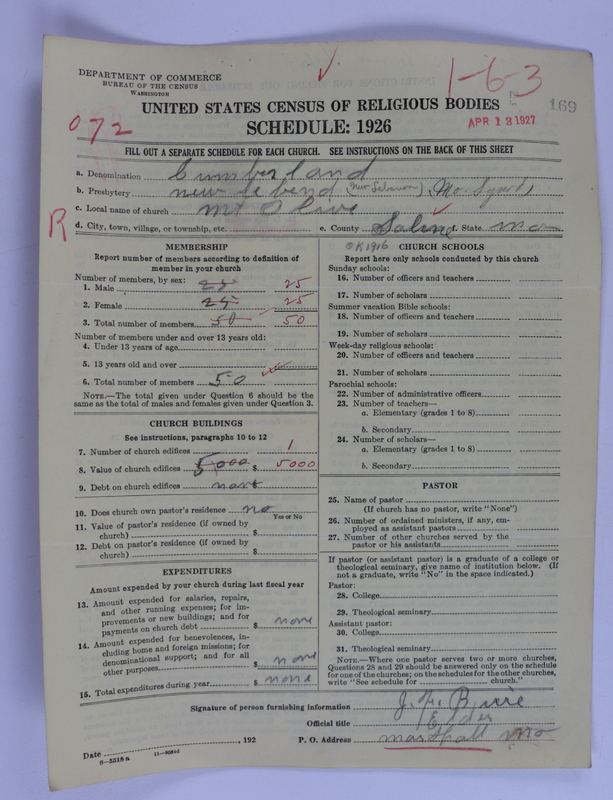 DEPARTMENT OF COMMERCE
BUREAU OF THE CENSUS
WASHINGTON
1-6-3
169
UNITED STATES CENSUS OF RELIGIOUS BODIES
072
SCHEDULE: 1926
APR 13 1927
FILL OUT A SEPARATE SCHEDULE FOR EACH CHURCH. SEE INSTRUCTIONS ON THE BACK OF THIS SHEET
a. Denomination Cumberland
b. Presbytery new (New Lebanon)
c. Local name of church mt Olive
R d. City, town, village, or township, etc. e. County Saline f. State mo
OK 1916
MEMBERSHIP
Report number of members according to definition of
member in your church
Number of members, by sex:
1. Male 25 25
2. Female 25 25
3. Total number of members 50 50
Number of members under and over 13 years old:
4. Under 13 years of age
5. 13 years old and over
6. Total number of members 50
NOTE.—The total given under Question 6 should be the
same as the total of males and females given under Question 3.
CHURCH BUILDINGS
See instructions, paragraphs 10 to 12
7. Number of church edifices 1
8. Value of church edifices 5000 $ 5000
9. Debt on church edifices none
10. Does church own pastor's residence no
Yes or No
11. Value of pastor's residence (if owned by
church) $
12. Debt on pastor's residence (if owned by
church) $
EXPENDITURES
Amount expended by your church during last fiscal year
13. Amount expended for salaries, repairs,
and other running expenses; for im-
provements or new buildings; and for
payments on church debt $ none
14. Amount expended for benevolences, in-
cluding home and foreign missions; for
denominational support; and for all
other purposes $ none
15. Total expenditures during year $ none
CHURCH SCHOOLS
Report here only schools conducted by this church
Sunday schools:
16. Number of officers and teachers
17. Number of scholars
Summer vacation Bible schools:
18. Number of officers and teachers
19. Number of scholars
Week-day religious schools:
20. Number of officers and teachers
21. Number of scholars
Parochial schools:
22. Number of administrative officers
23. Number of teachers—
a. Elementary (grades 1 to 8)
b. Secondary
24. Number of scholars—
a. Elementary (grades 1 to 8)
b. Secondary
PASTOR
25. Name of pastor
(If church has no pastor, write "None")
26. Number of ordained ministers, if any, em-
ployed as assistant pastors
27. Number of other churches served by the
pastor or his assistants
If pastor (or assistant pastor) is a graduate of a college or
theological seminary, give name of institution below. (If
not a graduate, write "No" in the space indicated.)
Pastor:
28. College
29. Theological seminary
Assistant pastor:
30. College
31. Theological seminary
NOTE.—Where one pastor serves two or more churches,
Questions 28 and 29 should be answered only on the schedule
for one of the churches; on the schedules for the other churches,
write "See schedule for church."
Signature of person furnishing information
Official title Elder
Date , 192 P. O. Address marshall mo
8-5518a